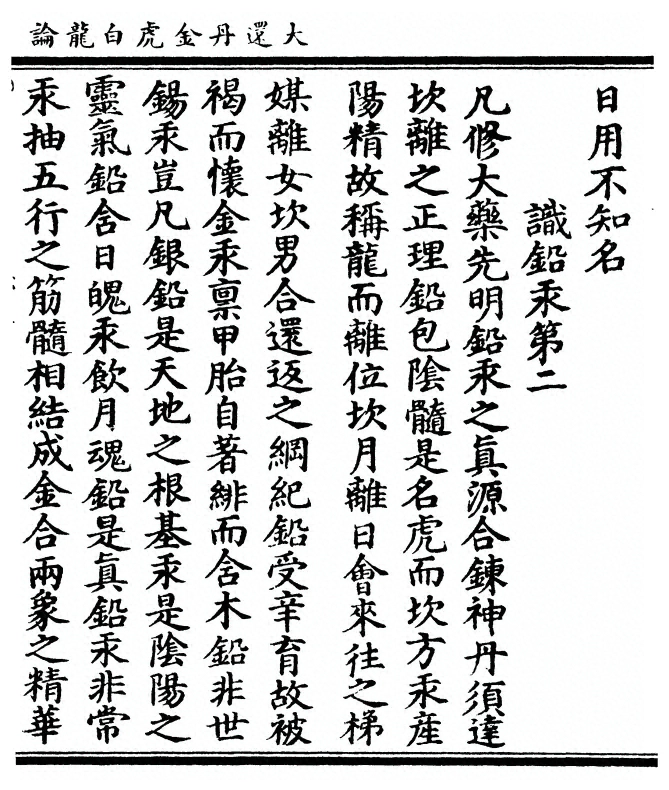 大還丹金虎白龍論
日用不知名
識鉛汞第二
凡修大藥先明鉛汞之眞源合鍊神丹須達
坎離之正理鉛包陰髓是名虎而坎方汞産
陽精故稱龍而離位坎月離日會來往之梯
媒離女坎男合還返之綱紀鉛受辛育故被
褐而懷金汞禀甲胎自著緋而含木鉛非世
錫汞豈凡銀鉛是天地之根基汞是陰陽之
靈氣鉛含日魄汞飲月魂鉛是眞鉛汞非常
汞抽五行之筋髓相結成金合兩象之精華